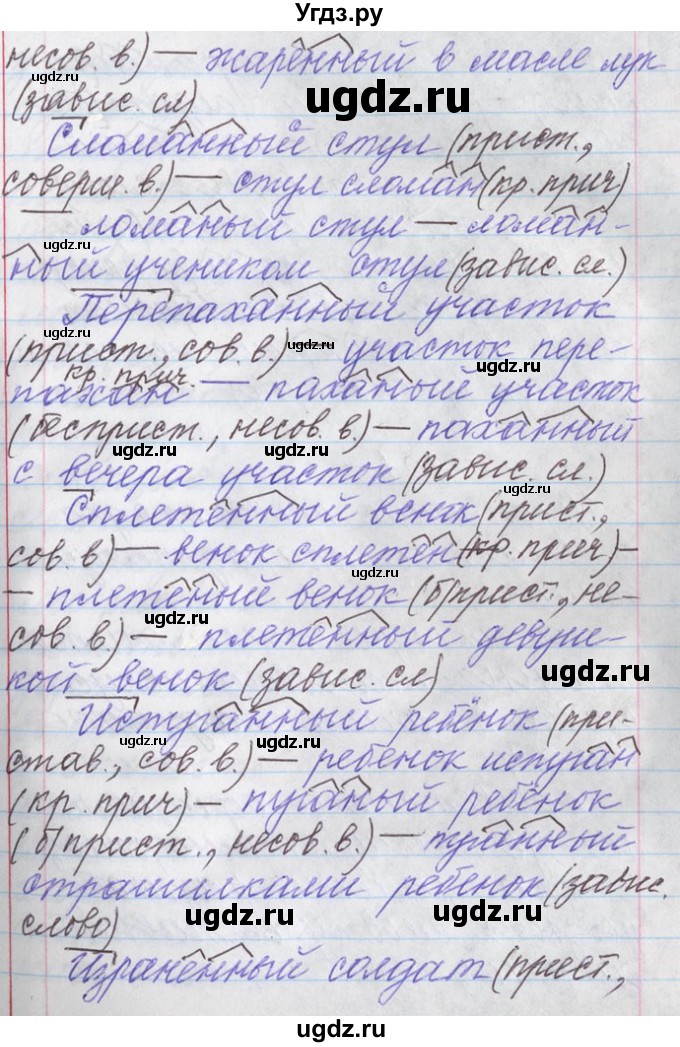 Угдз.ру
несов. в.) — жаренный в масле лук
(завис. сл)
Сломанный стул (прист.,
соверш. в.) — стул сломан (кр. прич)
— ломаный стул — ломан-
ный учеником стул (завис. сл.)
Перепаханный участок
(прист., сов. в.) — участок пере-
кр. прич.
пахан — паханый участок
(бесприст., несов. в.) — паханный
с вечера участок (завис. сл.)
Сплетённый венок (прист.,
сов. в) — венок сплетён (кр. прич) -
- плетёный венок (б/прист., не-
сов. в.) — плетённый девуш-
кой венок (завис. сл)
Испуганный ребёнок (при-
став., сов. в.) — ребенок испуган
(кр. прич) — пуганый ребёнок
(б/прист., несов. в.) — пуганный
страшилками ребенок (завис.
слово)
Израненный солдат (прист.,
ugdz.ru